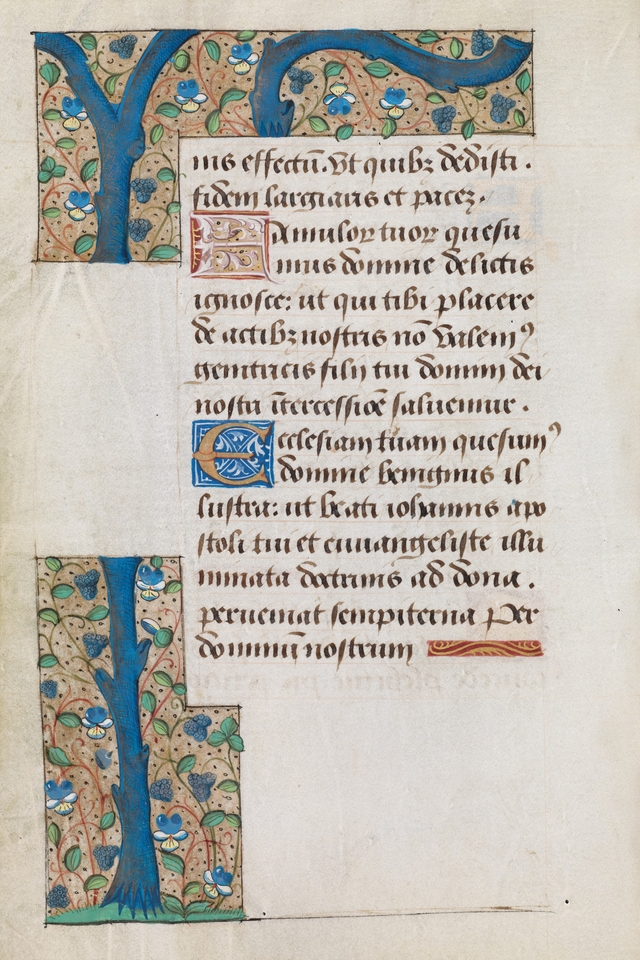 nis effectū. Vt quibꝫ dedisti.
fidem largiaris et paceꝫ.
Famuloꝝ tuoꝝ quesu
mus domine delictis
ignosce: ut qui tibi placere
de actibꝫ nostris nō valemꝰ
genitricis filij tui domini dei
nostri ītercessiōe saluemur.
Ecclesiam tuam quesumꝰ
domine benignus il
lustra: ut beati iohannis apo
stoli tui et euuangeliste illu
minata doctrinis ad dona.
perueniat sempiterna Per
dominū nostrum